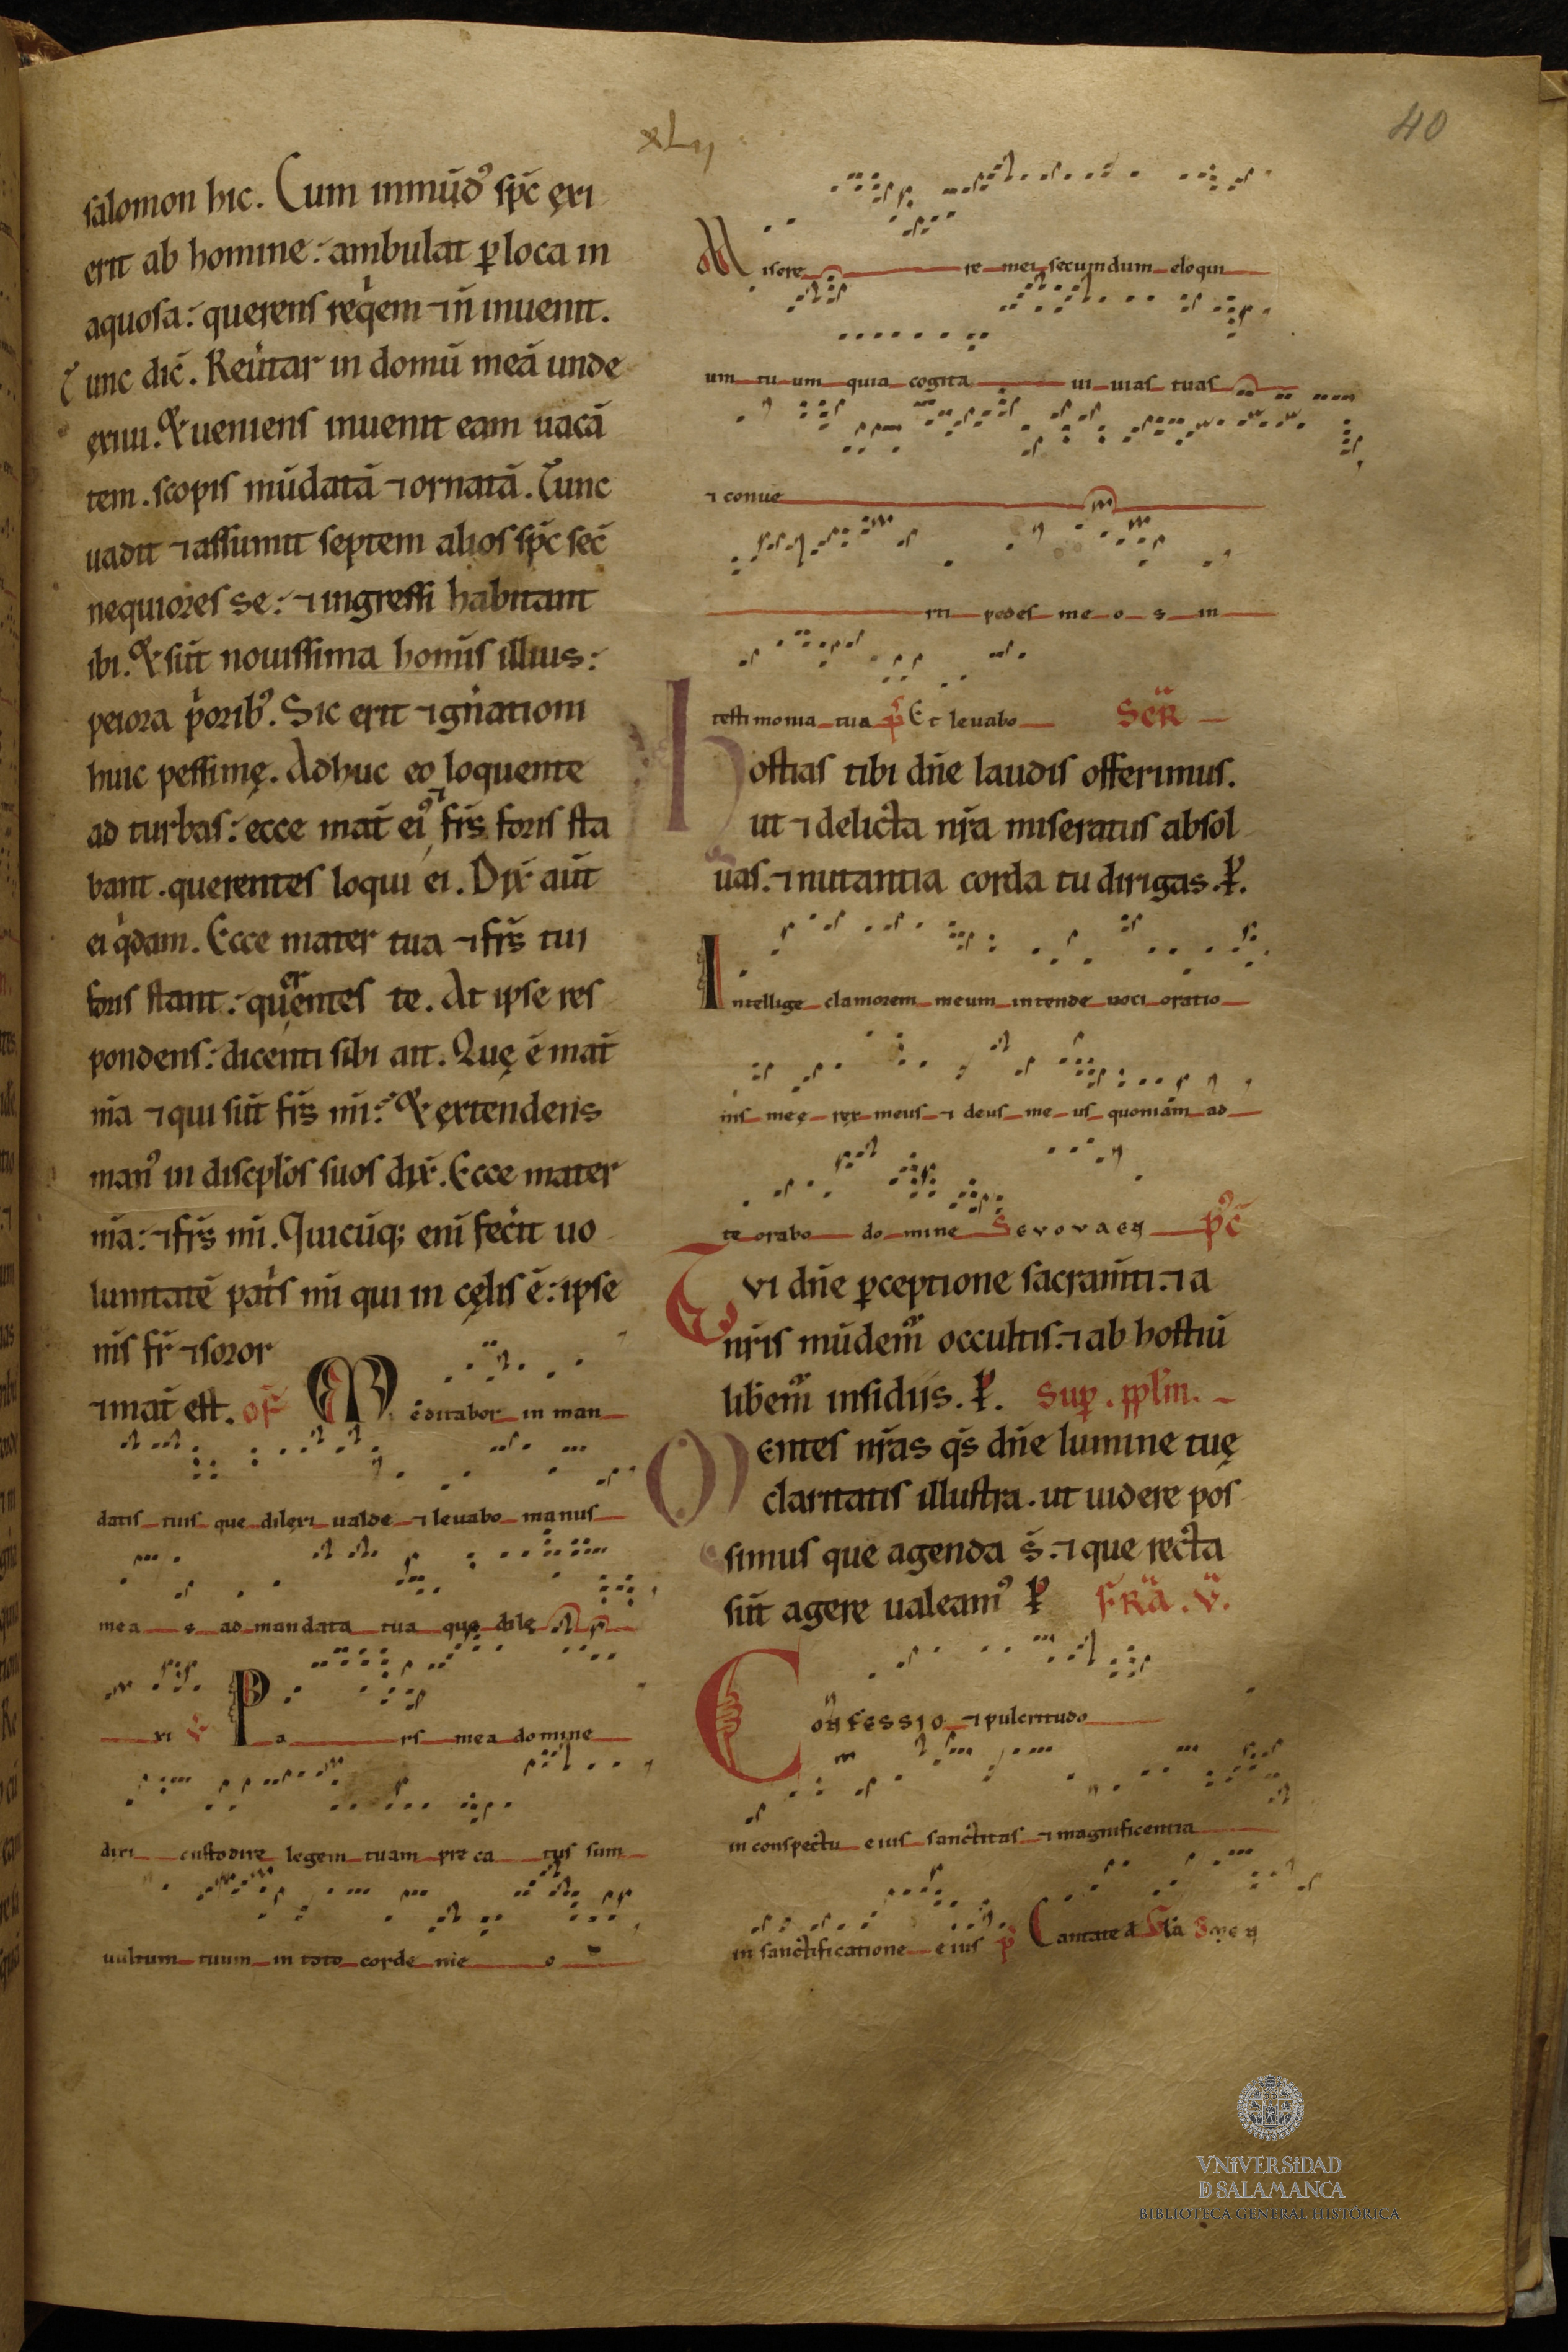 xLij
40
salomon hic. Cum inmūd⁹ sp̄c ęxi
erit ab homine: ambulat ꝑ loca in
aquosa: querens reqͥem ⁊ n̄ inuenit.
Tunc dic̄. Reu̾tar in domū meā unde
ęxiui. Et ueniens inuenit eam uacā
tem. scopis mūdatā ⁊ ornatā. Tunc
uadit ⁊ assumit septem alios sp̄c sec̄
nequiores se: ⁊ ingressi habitant
ibi. Et sūt nouissima homīs illius:
peiora pͥorib⁹. Sic erit ⁊ gn̄ationi
huic pessimę. Adhuc eo loquente
ad turbas: ecce mat̄ ei⁹ ⁊ fr̄s foris sta
bant. querentes loqui ei. Dix̄ aūt
ei qͥdam. Ecce mater tua ⁊ fr̄s tui
foris stant: querentes te. At ipse res
pondens: dicenti sibi ait. Quę ē mat̄
m̄a ⁊ qui sūt fr̄s m̄i: Et ęxtendens
man⁹ in discpl̄os suos dix̄. Ecce mater
m̄a: ⁊ fr̄s m̄i. Quicūq; eni fec̾it uo
luntatē pat̾s m̄i qui in cęlis ē: ipse
m̄s fr̄ ⁊ soror
⁊ mat̄ est. of̄ Meditabor in man
datis tuis que dilęxi ualde ⁊ leuabo manus
mea s ad mandata tua que dilę
xi v̄ Pa rs mea domine
dixi custodire legem tuam pre ca tus sum
uultum tuum in toto corde me o
Misere re mei secundum eloqui
um tu um quia cogita ui uias tuas
⁊ conue
rti pedes me o s in
testimonia tua p̄ Et leuabo Sec̄R
Hostias tibi dn̄e laudis offerimus.
ut ⁊ delicta nr̄a miseratus absol
uas. ⁊ nutantia corda tu dirigas. ꝑ.
Intellige clamorem meum intende uoci oratio
nis meę ręx meus ⁊ deus me us quoniam ad
te orabo do mine Sevovaen p⁹c̄
Tvi dn̄e ꝑceptione sacram̄ti: ⁊ a
nr̄is mūdem᷒ occultis: ⁊ ab hostiū
lib̄em᷒ insidiis. ꝑ. Suꝑ. ppl̄m.
Mentes nr̄as qs̄ dn̄e lumine tuę
claritatis illustra. ut uidere pos
simus que agenda s̄: ⁊ que recta
sūt agere ualeam⁹ ꝑ FR̄a. V̄.
Confessio ⁊ pulcritudo
in conspectu eius sanctitas ⁊ magnificentia
in sanctificatione eius p̄ Cantate d Gl̄a
VNiVERSiDAD
D SALAMANCA
BIBLIOTECA GENERAL HISTÓRICA